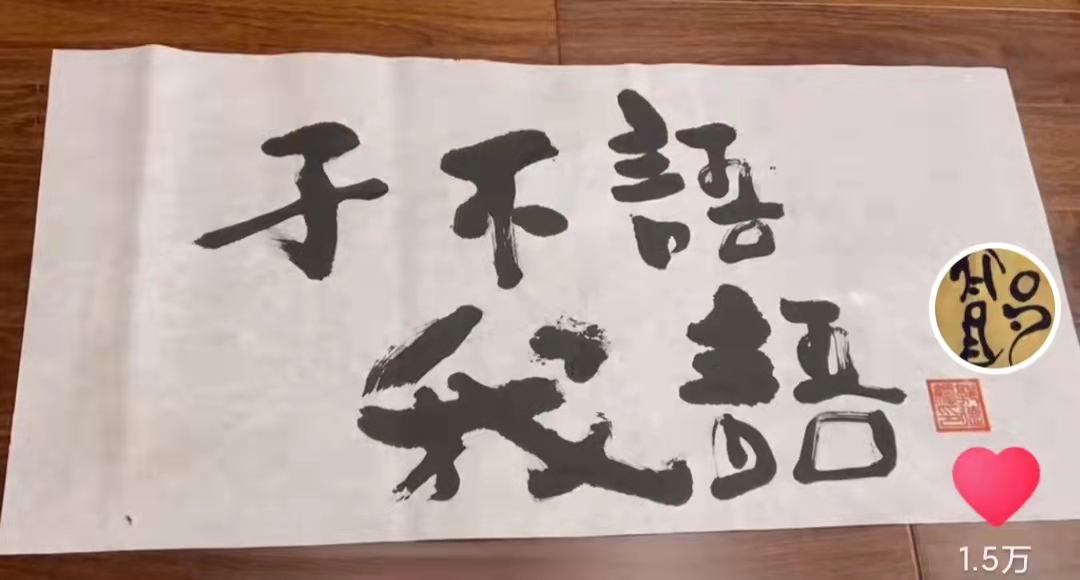 子不語
我語
1.5万